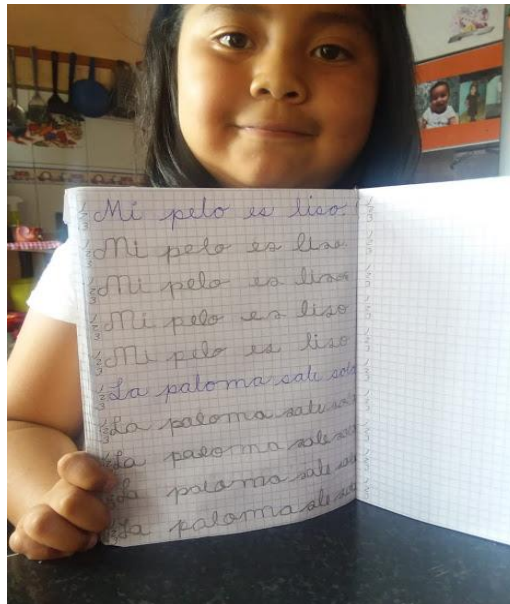 Mi pelo es liso.
Mi pelo es liso
Mi pelo es liso
Mi pelo es liso
Mi pelo es liso
La paloma sale sola
La paloma sale sola
La paloma sale sola
La paloma sale sola
La paloma ale sola